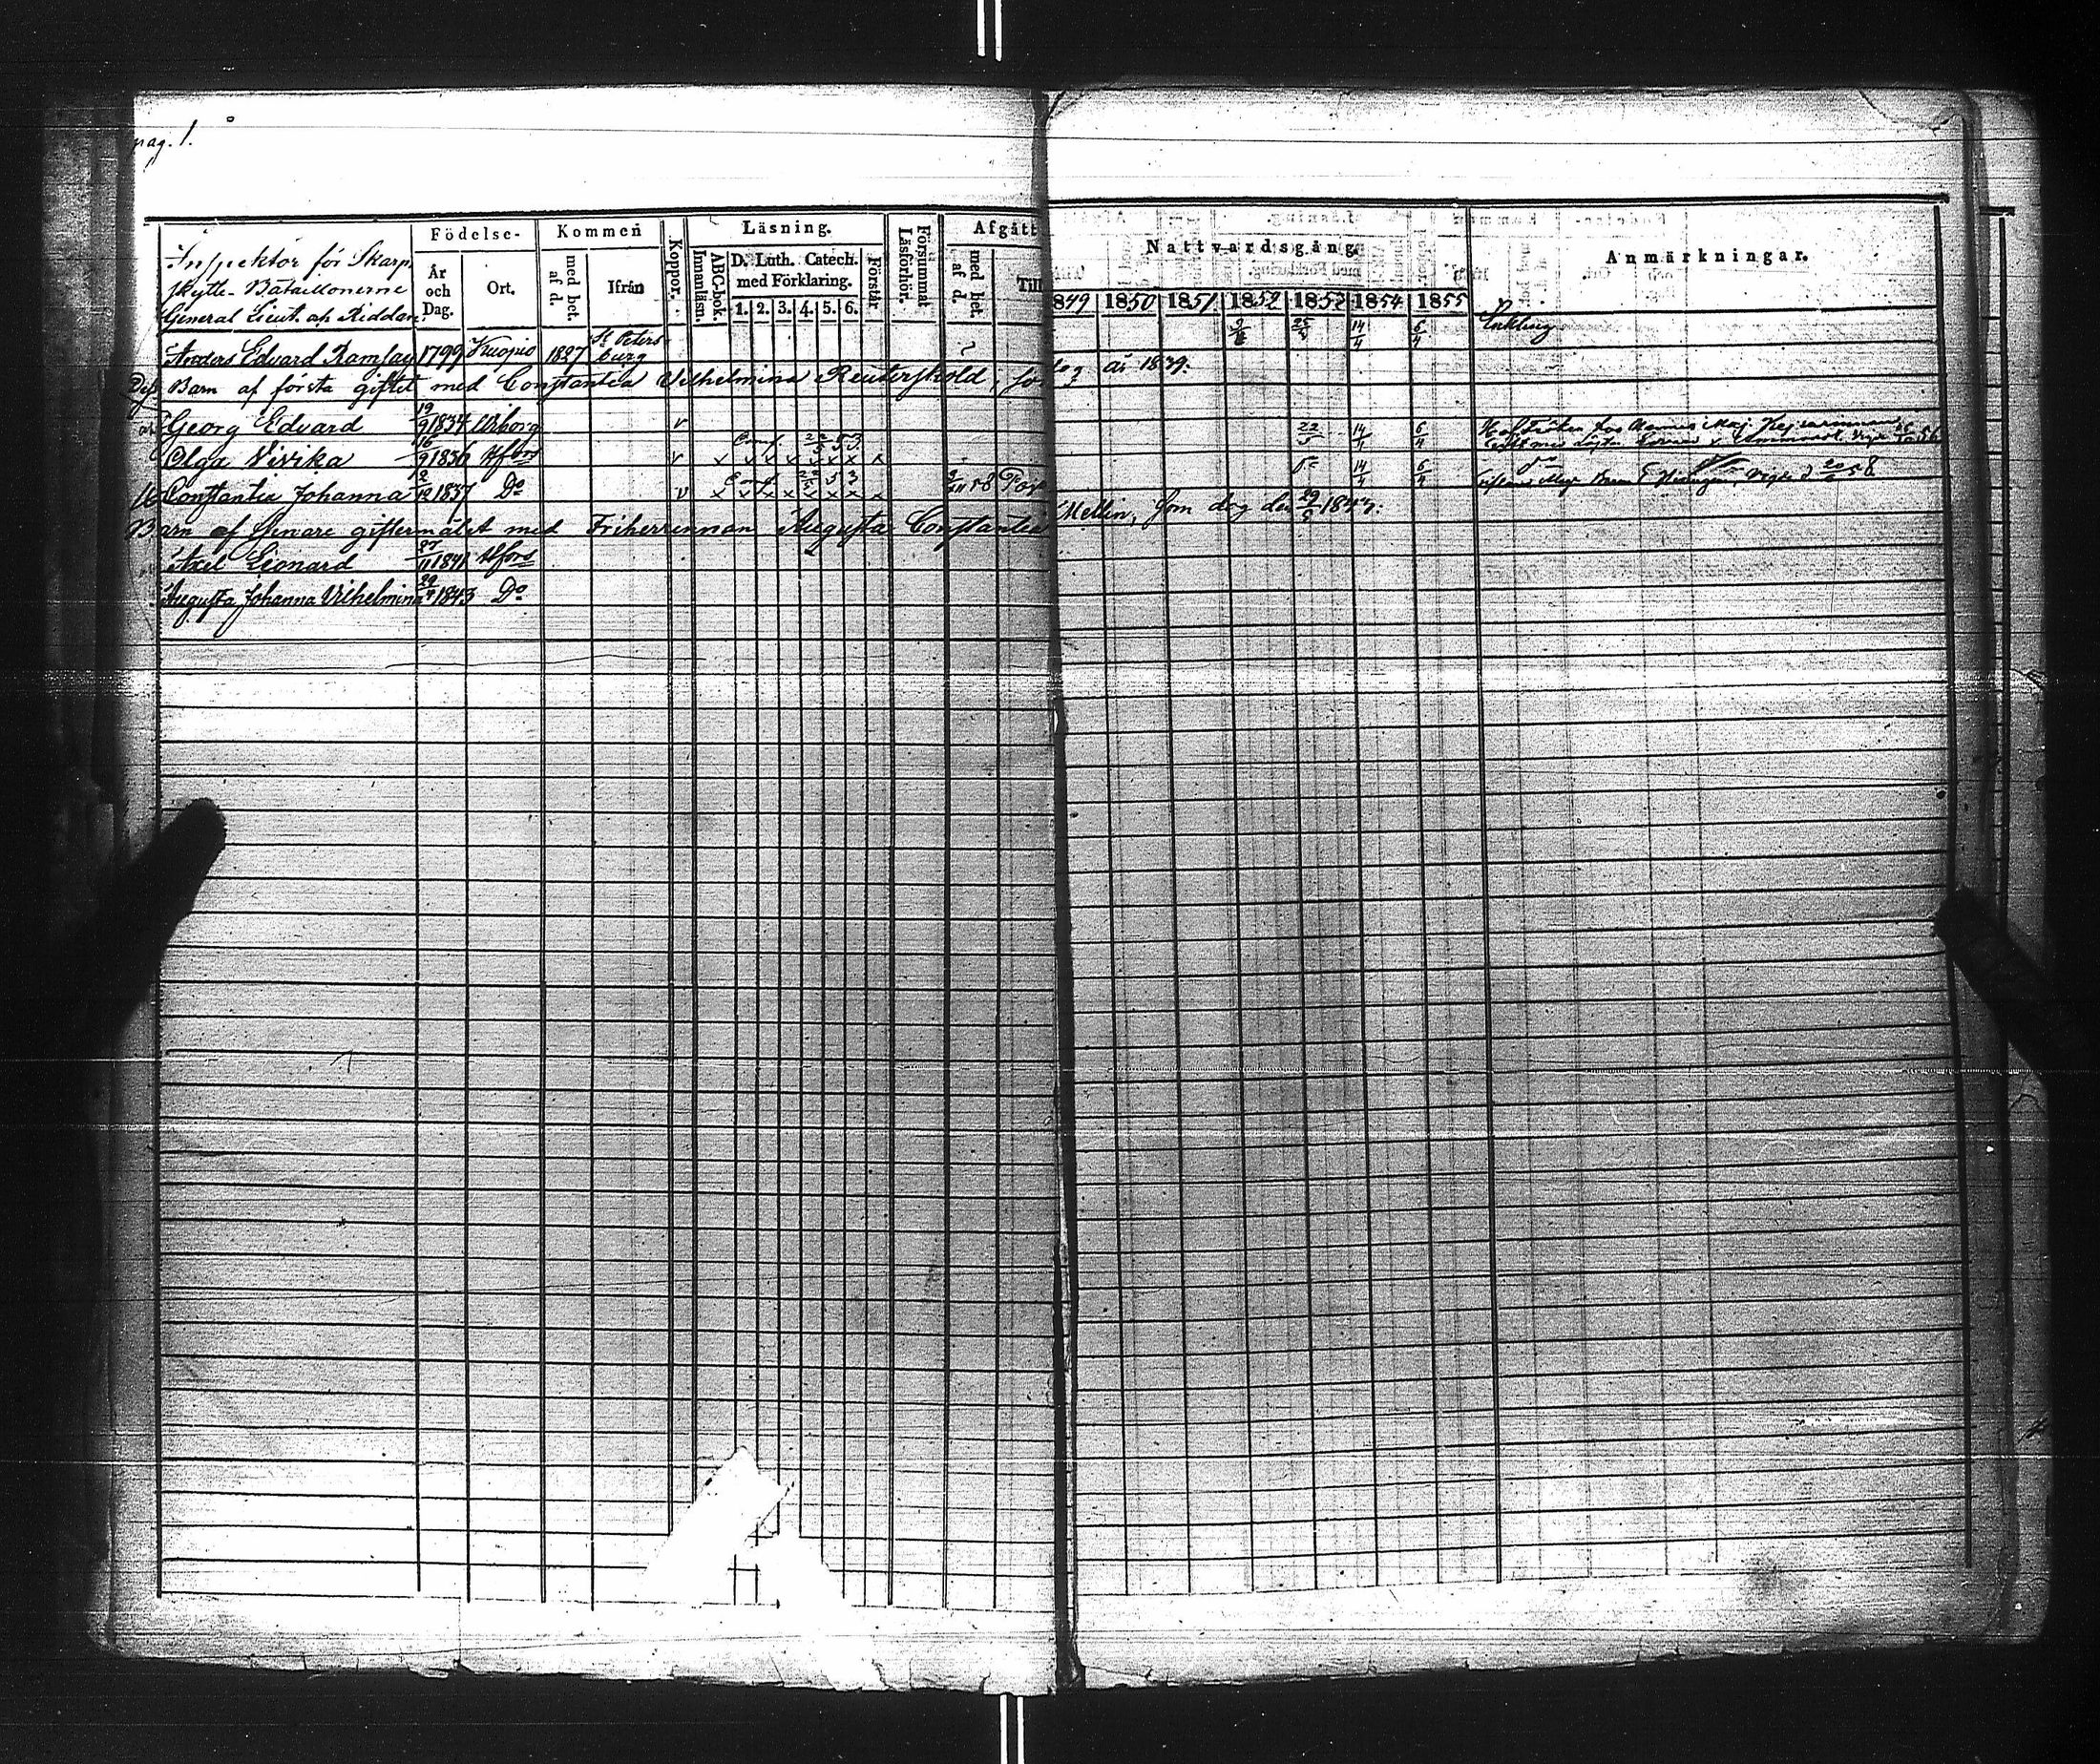 pag. 1.
Inspektör för Skarp-
skytte-Bataillonerne
General Lieut. och Riddar.
Födelse-
År och Dag.
Ort.
Kommen
med bet. af d.
Ifrån
Koppor.
Läsning.
Innanläsn.
ABC-bok.
D. Luth. Catech.
med Förklaring.
1. 2. 3. 4. 5. 6.
Förstår
Försummat Läsförhör.
Afgått
med bet. af d.
Till
Nattvardsgång.
1849 1850 1851 1852 1853 1854 1855
Anmärkningar.
Anders Edvard Ramsay 1799 Kuopio 1827 St Petersburg 14/4 6/4 Enkling
Barn af första giftet med Constantia Vilhelmina Reuterskold, som dog år 1839.
Georg Edvard 19/9 1834 Wiborg v
Olga Vivika 16/9 1836 Hfors v x x x x x x x x 22/5 14/4 6/4
Constantia Johanna 2/12 1837 Do v x x x x x x x x 58 14/4 6/4
Barn af senare giftermålet med Friherrinnan Augusta Constantia Mellin, som dog den 29/9 1843.
Axel Leonard 27/11 1841 Hfors
Augusta Johanna Vilhelmina 1843 Do